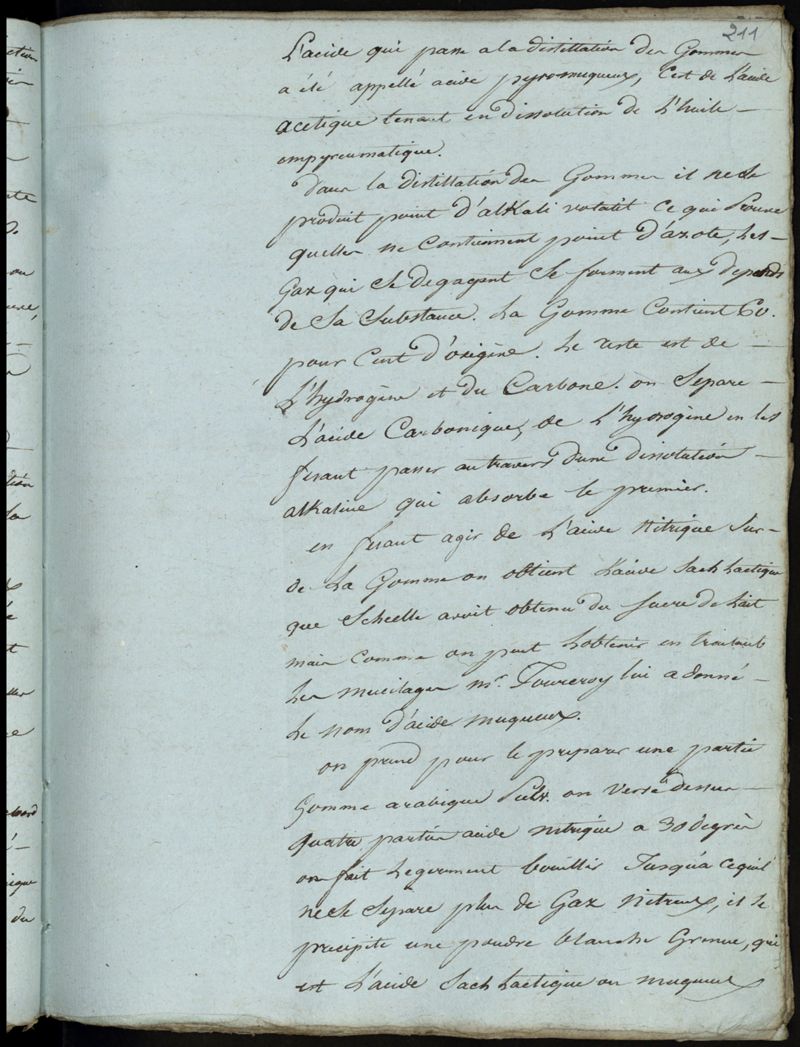 211
L'acide qui passe a la distillation des Gommes
a été appellé acide pyromuqueux, C'est de L'acide
acetique tenant en dissolution de L'huile —
empyreumatique.
Dans la distillation des Gommes il ne Se
produit point d'alKali volatil Ce qui Prouve
quelles ne Contiennent point d'azote, Les —
Gaz qui Se degagent Se forment aux depends
de Sa Substance. La Gomme Contient 60.
pour Cent d'oxigène. Le reste est de —
L'hydrogène et du Carbone. on Separe —
L'acide Carbonique, de L'hydrogène en les
fesant passer au travers d'une dissolution —
alKaline qui absorbe le premier.
en fesant agir de L'acide Nitrique Sur —
de La Gomme on obtient L'acide Sach Lactique
que Scheelle avoit obtenu du Sucre de Lait
mais Comme on peut Lobtenir en traitant
Les mucilages mr. Fourcroy lui a donné —
Le nom d'acide muqueux.
on prend pour le preparer une partie
Gomme arabique Pulv. on Verse dessus —
quatre parties acide nitrique a 30 degrès
on fait Legerement bouillir Jusqu'a Ce quil
ne Se Separe plus de Gaz Nitreux, il Se
precipite une poudre blanche Grenue, qui
est L'acide Sach Lactique ou muqueux